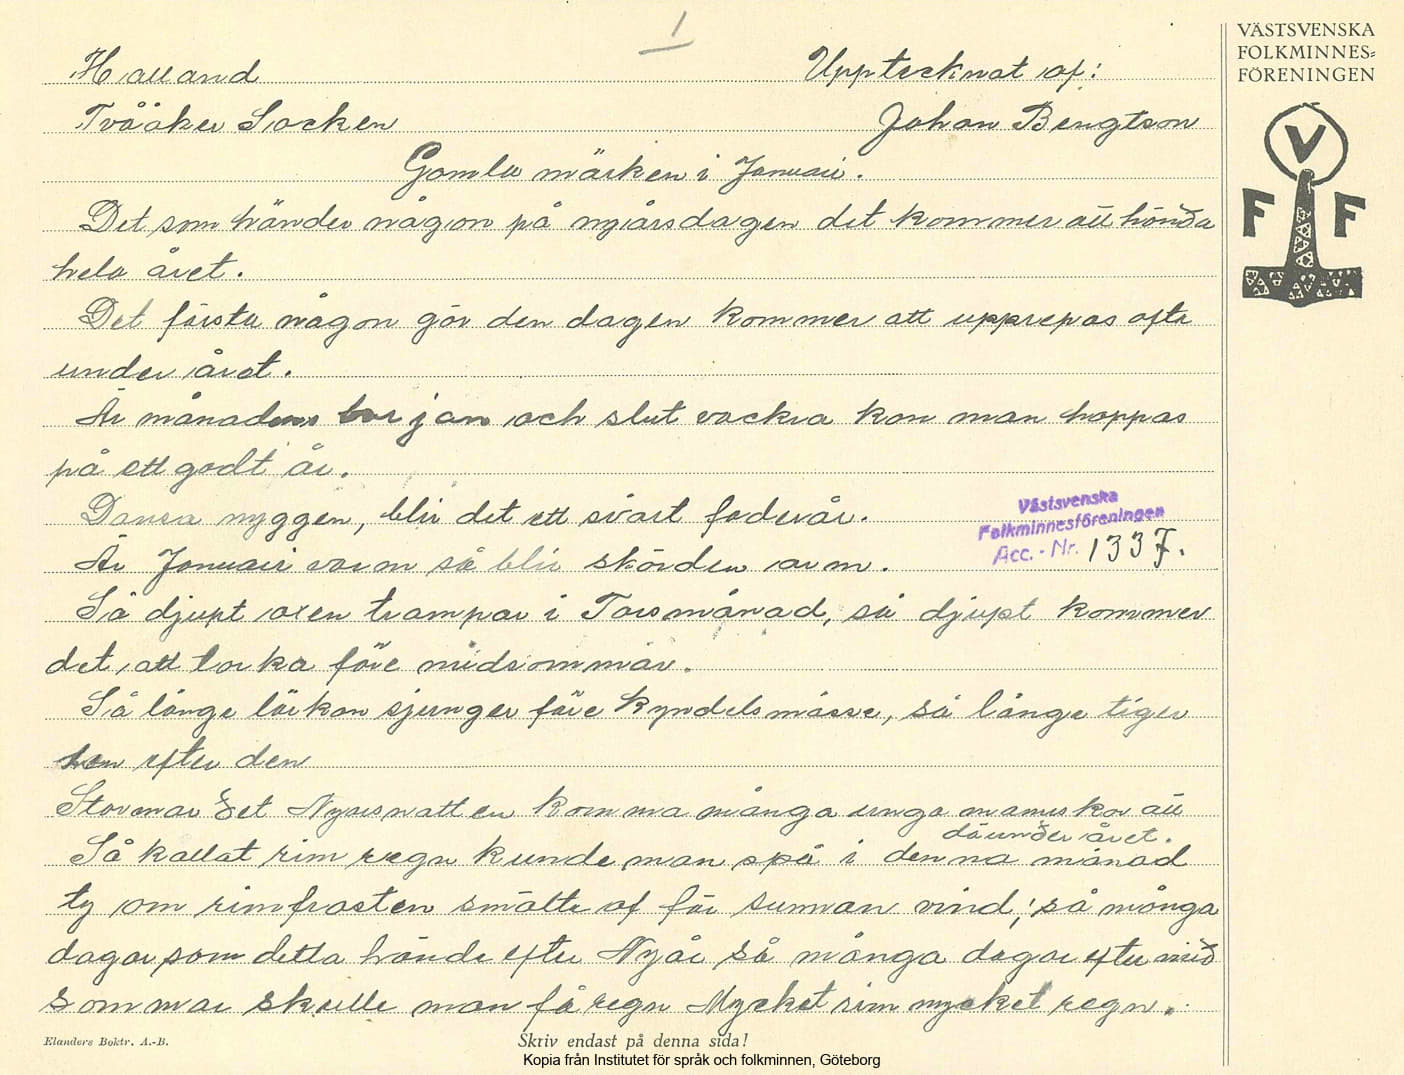 1
VÄSTSVENSKA
FOLKMINNES-
FÖRENINGEN
V
F F
Halland Upptecknat af:
Tvååker Socken Johan Bengtson
Gamla märken i Januari.
Det som händer någon på nyårsdagen det kommer att hända
hela året.
Det första någon gör den dagen kommer att upprepas ofta
under året.
Är månadens borjan och slut vackra kan man hoppas
på ett godt år.
Dansa myggen, blir det ett svårt foderår.
Västsvenska
Folkminnesföreningen
Acc. - Nr. 1337.
Är Januari varm så blir skörden arm.
Så djupt oxen trampar i Torsmånad, så djupt kommer
det att torka före midsommar.
Så länge lärkan sjunger före Kyndelsmässa, så länge tiger
hon efter den
Stormar det Nyarsnatten komma många unga manniskor att
dö under året.
Så kallat rim regn kunde man spå i denna månad
ty om rimfrosten smälte af för sunnan vind, så många
dagar som detta hände efter Nyår så många dagar efter mid
sommar skulle man få regn Mycket rim mycket regn.
Elanders Boktr. A.-B.
Skriv endast på denna sida!
Kopia från Institutet för språk och folkminnen, Göteborg